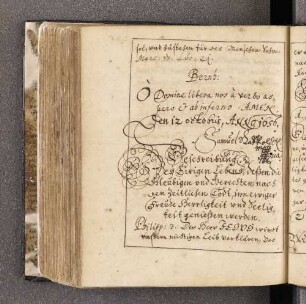 sol, und
für des Menschen Sohn
Marc. 13. Luc. 21.
Bernh:
O Domine libera nos à verbo as-
pero et ab inferno. AMEN
Den 12 octobris, ANNO 1656,
Samuel
Beschreibung
des Ewigen Lebens, dessen die
Gläubigen und Gerechten nach
dem Zeitlichen Todt, in ewiger
Freude Herrligkeit und Seelig-
keit geniessen werden.
Philipp: 3. Der Herr JESUS wirdt
unsern nichtigen Leib verklären, das